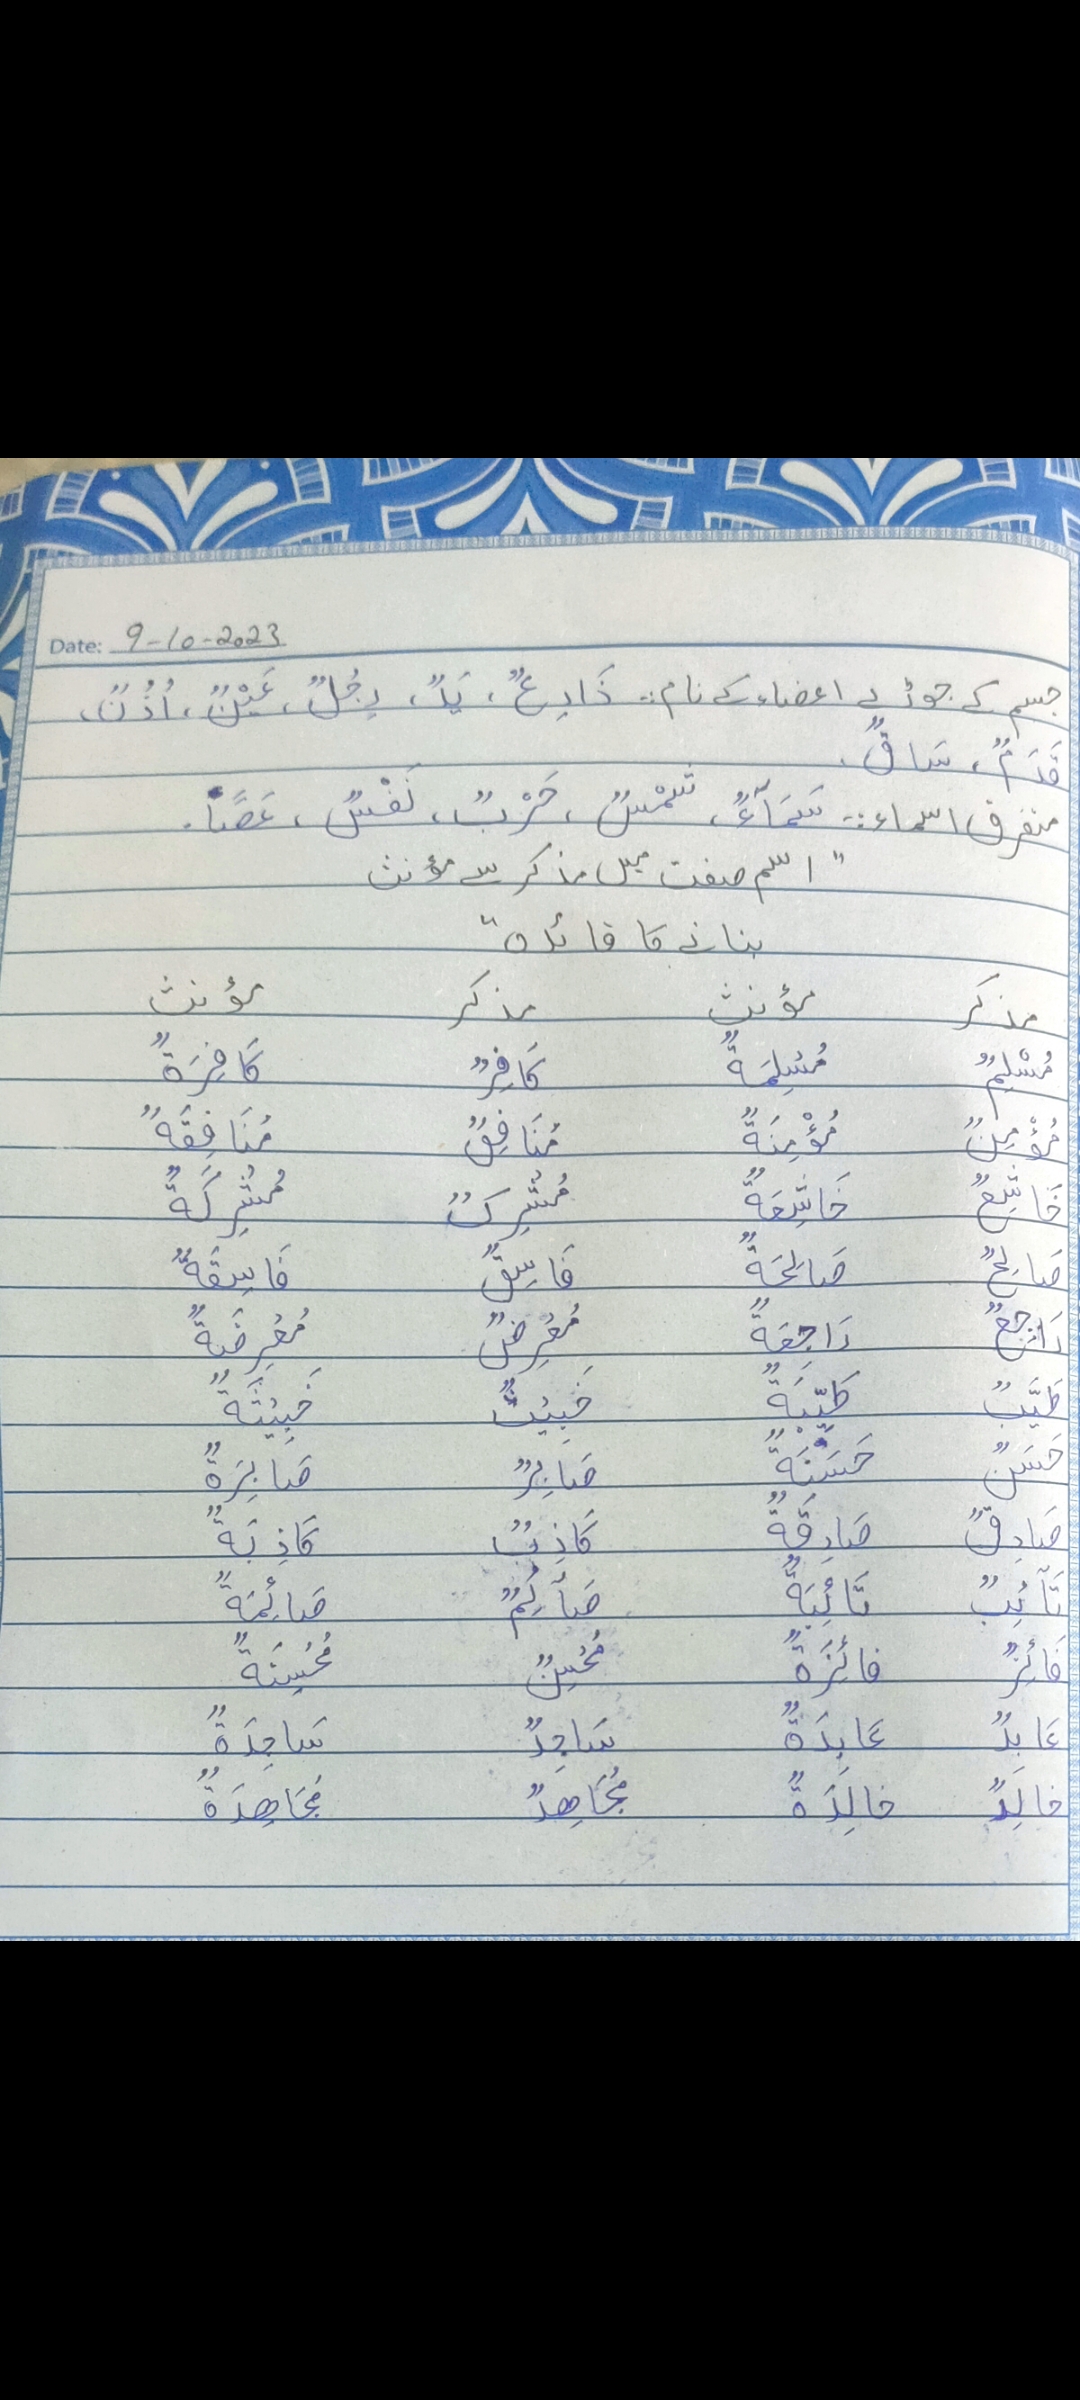 Date: 9-10-2023
جسم کے جوڑ لے اعضاء کے نام:۔ ذَارِعٌ، يَدٌ، رِجُلٌ، عَيْنٌ، اُذُنٌ،
قَدَمٌ، سَاقٌ،
متفرق اسماء:۔ سَمَآءٌ، شَمْسٌ، حَرْبٌ، نَفْسٌ، عَصًا۔
"اسم صفت میں مذکر سے مؤنث
بنانے کا قائدہ"
مذکر مؤنث مذکر مؤنث
مُسْلِمٌ مُسْلِمَةٌ كَافِرٌ كَافِرَةٌ
مُؤْمِنٌ مُؤْمِنَةٌ مُنَافِقٌ مُنَافِقَةٌ
خَاشِعٌ خَاشِعَةٌ مُشْرِكٌ مُشْرِكَةٌ
صَالِحٌ صَالِحَةٌ فَاسِقٌ فَاسِقَةٌ
رَاجِعٌ رَاجِعَةٌ مُعْرِضٌ مُعْرِضَةٌ
طَيِّبٌ طَيِّبَةٌ خَبِيْثٌ خَبِيْثَةٌ
حَسَنٌ حَسَنَةٌ صَابِرٌ صَابِرَةٌ
صَادِقٌ صَادِقَةٌ كَاذِبٌ كَاذِبَةٌ
تَآئِبٌ تَائِبَةٌ صَآئِمٌ صَائِمَةٌ
فَائِزٌ فائِزَةٌ مُحْسِنٌ مُحْسِنَةٌ
عَابِدٌ عَابِدَةٌ سَاجِدٌ سَاجِدَةٌ
خالِدٌ خالِدَةٌ مُجَاهِدٌ مُجَاهِدَةٌ